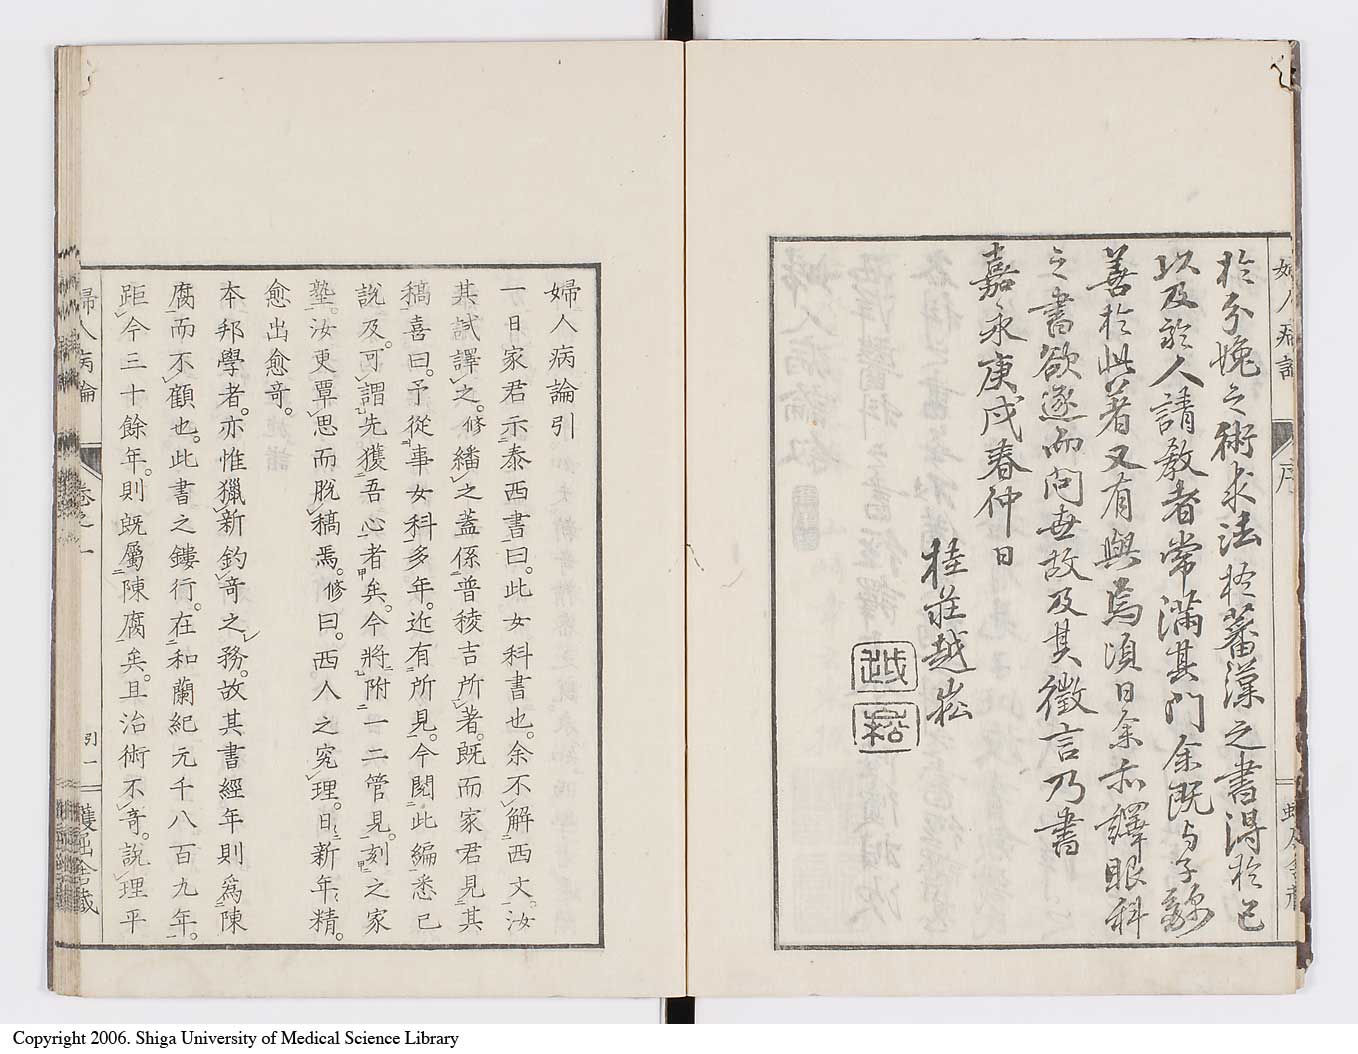 於分娩之術求法於蕃漢之書得於己
以及於人請教者常滿其門余既与子
善於此著又有與焉頃日余亦譯眼科
之書欲遂而問世故及其徵言乃書
嘉永庚戌春仲日
桂莊越崧
越
崧
婦人病論引
一日家君示泰西書曰。此女科書也。余不解西文。汝
其試譯之。修繙之蓋係普稜吉所著。既而家君見其
稿喜曰。予從事女科多年。近有所見。今閱此編悉已
說及。可謂先獲吾心者矣。今將附一二管見。刻之家
塾。汝更覃思而脫稿焉。修曰。西人之究理。日新年精。
愈出愈奇。
本邦學者。亦惟獵新釣奇之務。故其書經年則為陳
腐而不顧也。此書之鏤行。在和蘭紀元千八百九年。
距今三十餘年。則既屬陳腐矣。且治術不奇。說理平
婦人病論
卷之一
引一
蠖屈舍藏
Copyright 2006. Shiga University of Medical Science Library